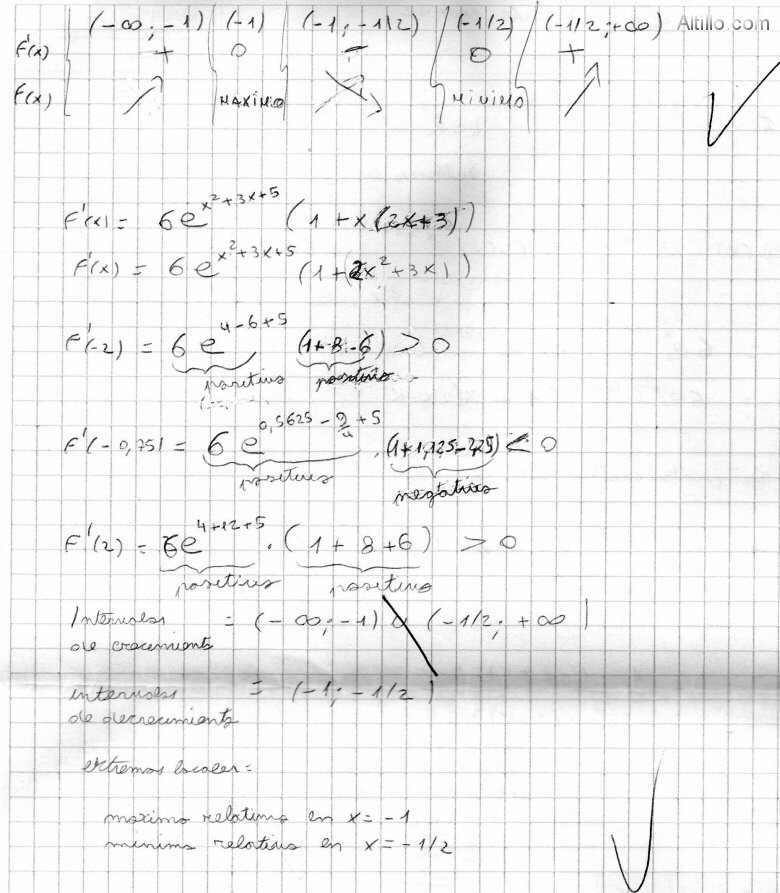 (-∞; -1) (-1) (-1; -1/2) (-1/2) (-1/2; +∞) Altillo.com
F'(x) + 0 - 0 +
F(x) MAXIMO MINIMO
F'(x) = 6e^{x²+3x+5} (1 + x(2x+3))
F'(x) = 6e^{x²+3x+5} (1+(2x²+3x))
F'(-2) = 6e^{4-6+5} (1+8-6) > 0
positivo positivo
F'(-0,75) = 6e^{0,5625-9/4+5} . (1+1,125-2,25) < 0
positivo negativo
F'(2) = 6e^{4+12+5} . (1+8+6) > 0
positivo positivo
Intervalos = (-∞; -1) U (-1/2; +∞)
de crecimiento
intervalos = (-1; -1/2)
de decrecimiento
extremos locales:
maximo relativo en x = -1
minimo relativo en x = -1/2